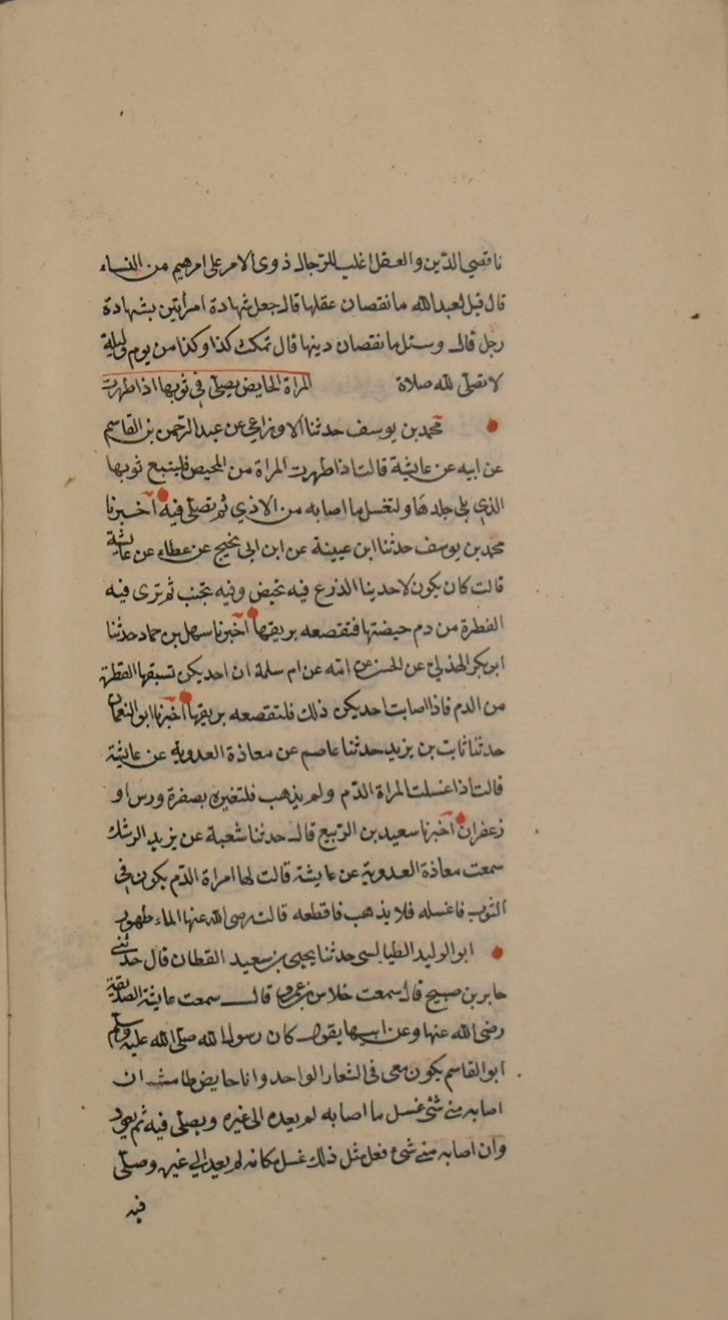 ناقصي الدّين والعقل اغلب للرّجال ذوى الامر على امرهم من النساء
قال قيل لعبد الله ما نقصان عقلها قال جعل شهادة امرأتين بشهادة
رجل قال وسئل ما نقصان دينها قال تمكث كذا وكذا من يوم وليلة
لا تصلّى لله صلاة المراة الحايض يصلّى فى ثوبها اذا طهرت
محمد بن يوسف حدثنا الاوزاعي عن عبد الرحمن بن القاسم
عن ابيه عن عايشة قالت اذا طهرت المراة من المحيض فليتبع ثوبها
الذي يلى جلدها ولتغسل ما اصابه من الاذي ثم تصلى فيه اخبرنا
محمد بن يوسف حدثنا ابن عيينة عن ابن ابى نجيح عن عطاء عن عايشة
قالت كان يكون لاحدينا الدرع فيه تحيض وفيه تجنب ثم ترى فيه
القطرة من دم حيضتها فتقصعه بريقها اخبرنا سهل بن حماد حدثنا
ابو بكر الهذلى عن الحسن عن امّه عن ام سلمة ان احديكن تسبقها القطرة
من الدم فاذا اصابت احديكن ذلك فلتقصعه بريقها اخبرنا ابو النعمان
حدثنا ثابت بن يزيد حدثنا عاصم عن معاذة العدوية عن عايشة
قالت اذا غسلت المراة الدّم ولم يذهب فلتغيره بصفرة ورس او
زعفران اخبرنا سعيد بن الرّبيع قال حدثنا شعبة عن يزيد الرشك
سمعت معاذة العدوية عن عايشة قالت لها امراة الدّم يكون فى
الثوب فاغسله فلا يذهب فاقطعه قالت رضى الله عنها الماء طهور
ابو الوليد الطيالسى حدثنا يحيى بن سعيد القطان قال حدثنى
جابر بن صبيح قال سمعت خلاس بن عمرو قال سمعت عايشة الصديقة
رضى الله عنها وعن ابيها يقول كان رسول الله صلى الله عليه وسلم
ابو القاسم يكون معى فى الشعار الواحد وانا حايض طامث ان
اصابه منى شئ غسل ما اصابه لم يعده الى غيره ويصلى فيه ثم يعود
وان اصابه منى شئ فعل مثل ذلك غسل مكانه لم يعد الى غيره وصلّى
فيه